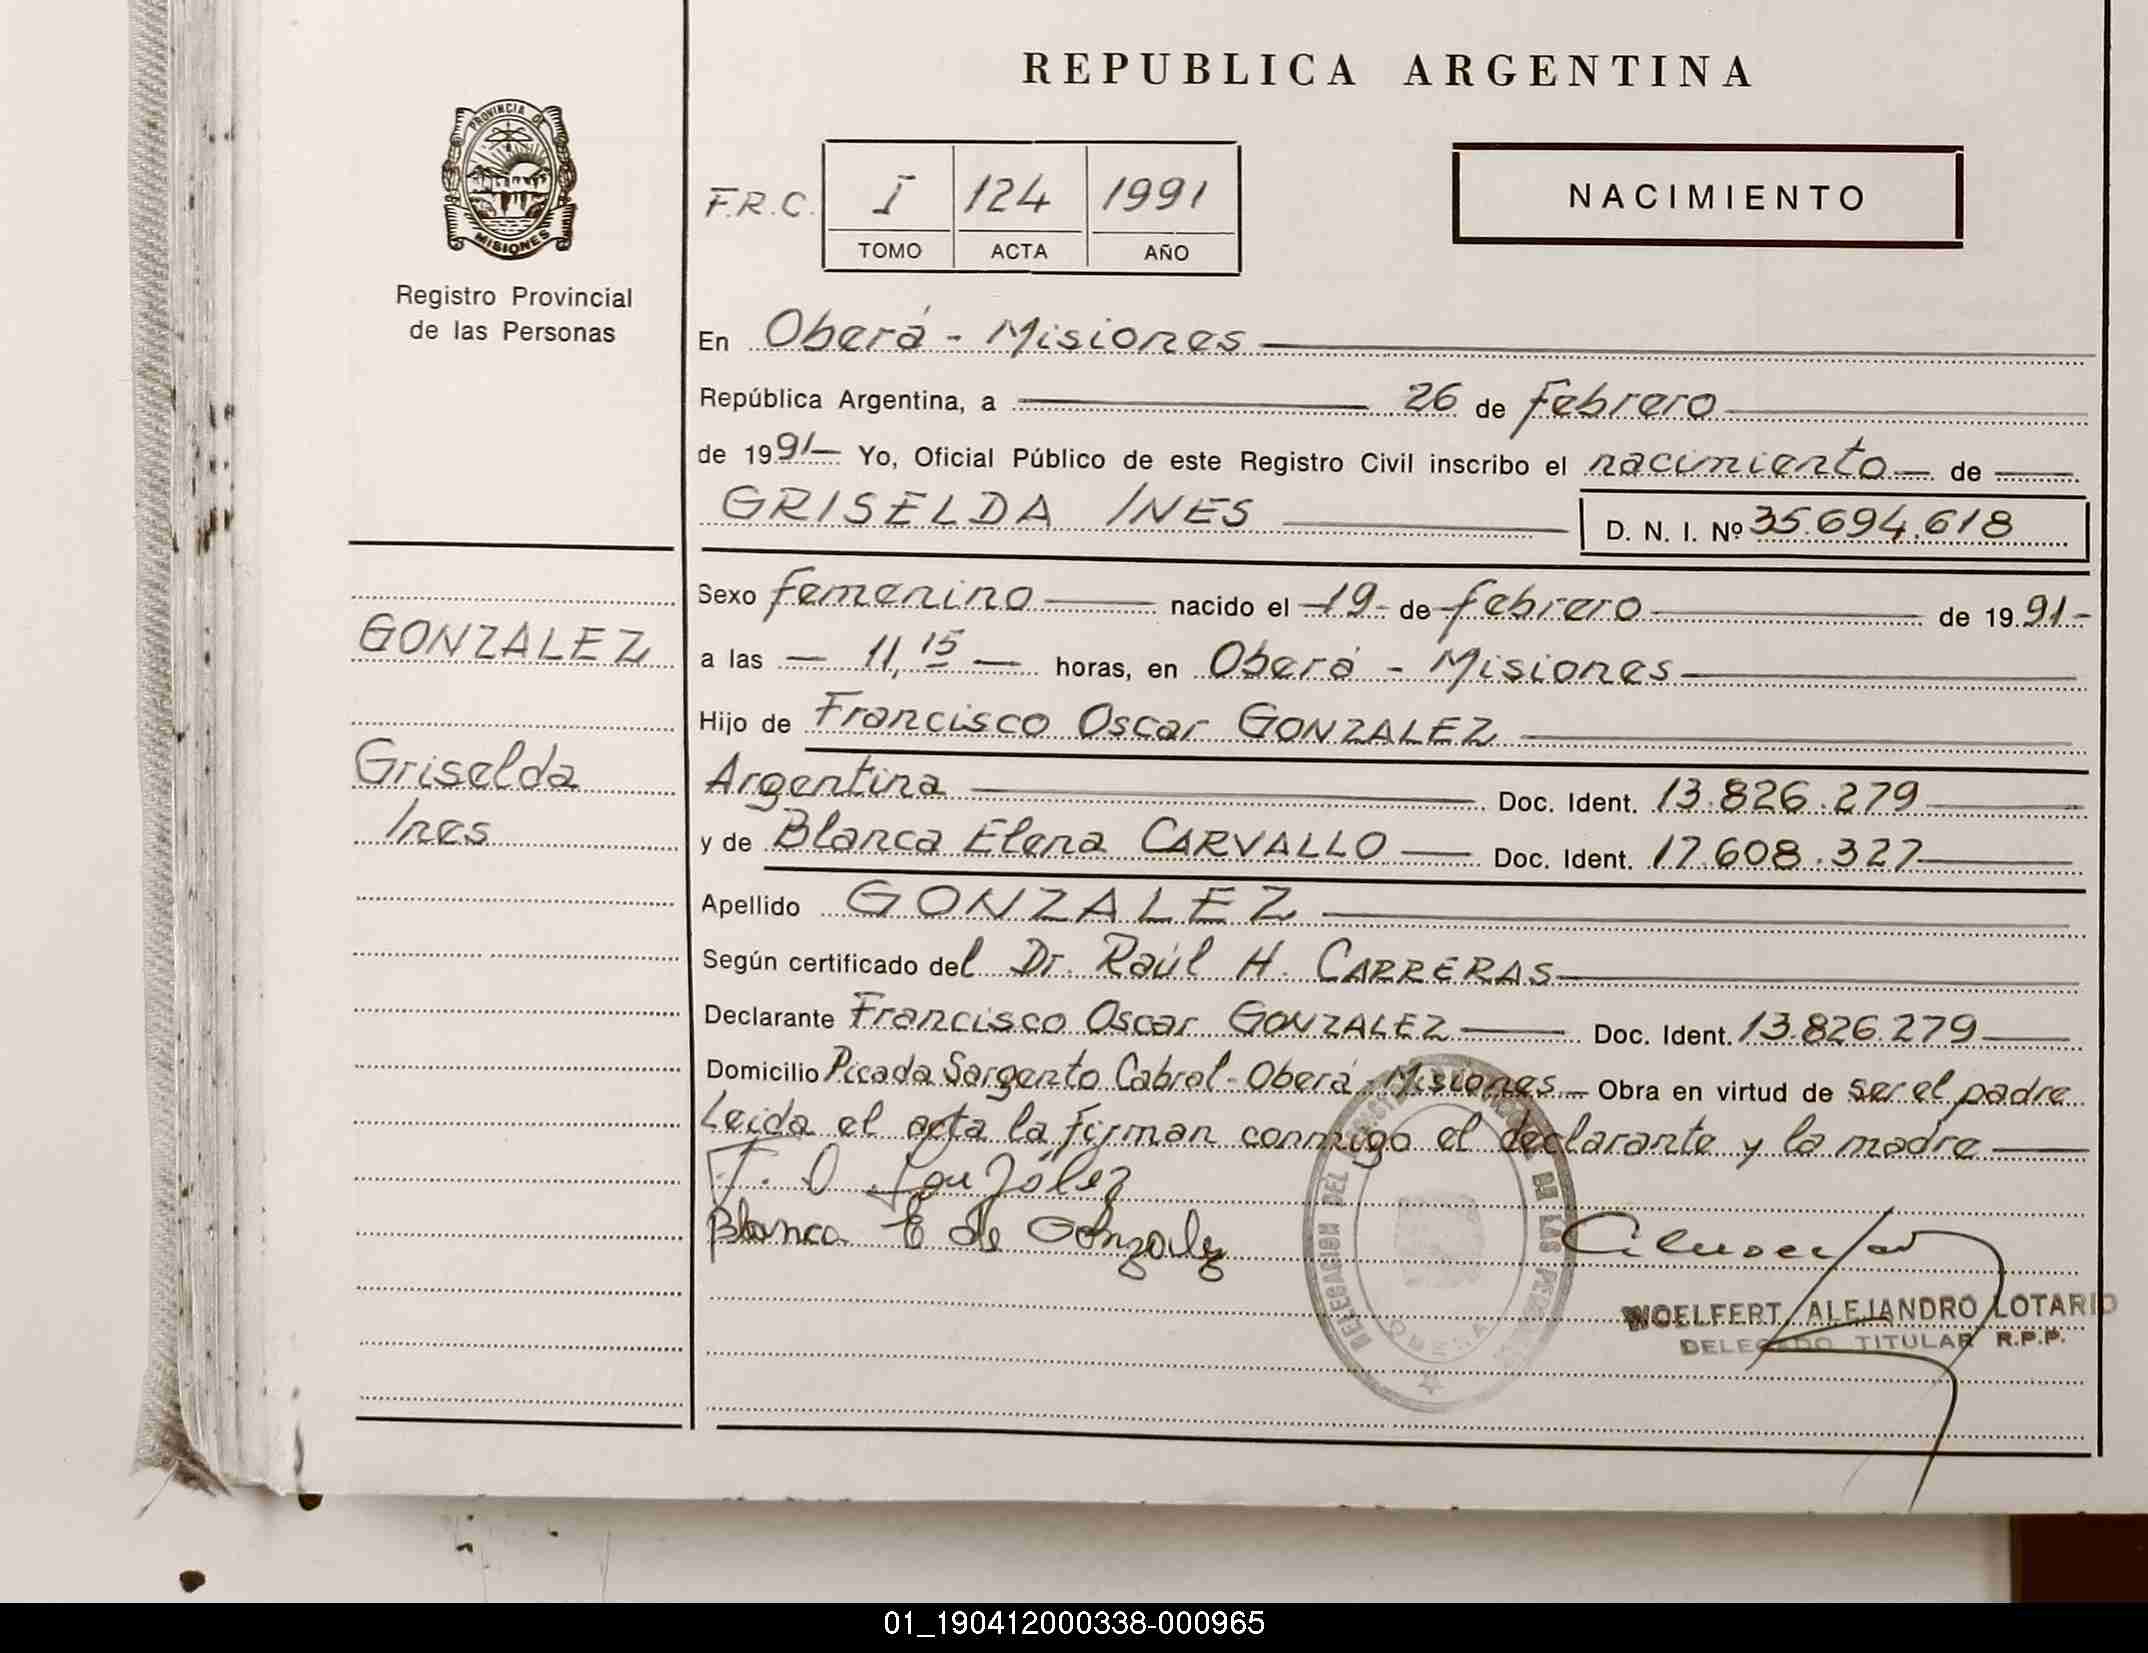 REPUBLICA ARGENTINA
PROVINCIA DE
MISIONES
Registro Provincial
de las Personas
F.R.C. I 124 1991
TOMO ACTA AÑO
NACIMIENTO
En Oberá - Misiones
República Argentina, a 26 de Febrero
de 1991 Yo, Oficial Público de este Registro Civil inscribo el nacimiento de
GRISELDA INES D. N. I. Nº 35.694.618
GONZALEZ
Griselda
Ines
Sexo femenino nacido el 19 de febrero de 1991
a las 11,15 horas, en Oberá - Misiones
Hijo de Francisco Oscar GONZALEZ
Argentina Doc. Ident. 13.826.279
y de Blanca Elena CARVALLO Doc. Ident. 17.608.327
Apellido GONZALEZ
Según certificado del Dr. Raúl H. CARRERAS
Declarante Francisco Oscar GONZALEZ Doc. Ident. 13.826.279
Domicilio Picada Sargento Cabral - Oberá - Misiones Obra en virtud de ser el padre
Leida el acta la firman conmigo el declarante y la madre
F. O González
Blanca E de Gonzalez
DELEGACION DEL DE LAS
WOELFERT ALEJANDRO LOTARIO
DELEGADO TITULAR R.P.P.
01_190412000338-000965